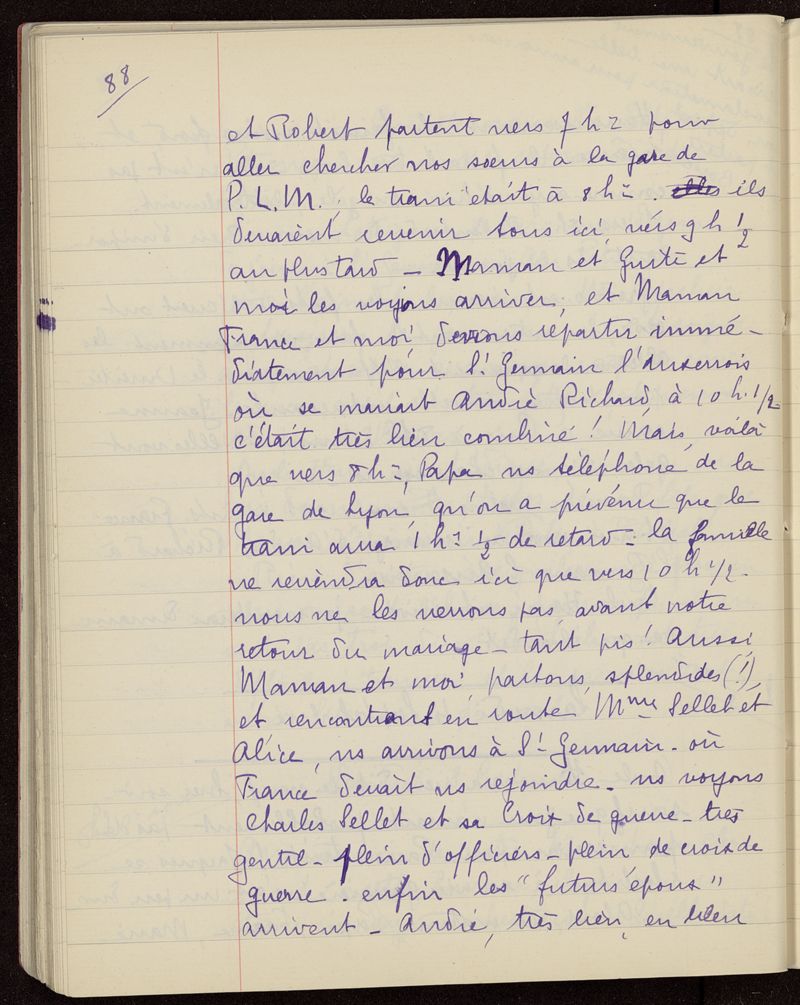 88
et Robert partent vers 7 h = pour
aller chercher nos soeurs à la gare de
P. L. M. ; le train était à 8 h = . elles ils
devaient revenir tous ici vers 9 h 1/2
au plus tard _ Maman et Guite et
moi les voyions arriver, et Maman
France et moi devions repartir immé-
diatement pour St Germain l'auxerrois
où se mariait André Richard, à 10 h. 1/2
c'était très bien combiné ! Mais, voilà
que vers 8 h =, Papa ns téléphone de la
gare de Lyon, qu'on a prévenu que le
train aura 1 h = 1/2 de retard - la famille
ne reviendra donc ici que vers 10 h 1/2 -
nous ne les verrons pas avant notre
retour du mariage - tant pis ! Aussi,
Maman et moi partons, splendides (!)
et rencontrant en route Mme Sellet et
Alice, ns arrivons à St Germain - où
France devait ns rejoindre - ns voyons
Charles Sellet et sa Croix de guerre - très
gentil - plein d'officiers - plein de croix de
guerre - enfin les "futurs époux"
arrivent - André, très bien, en bleu